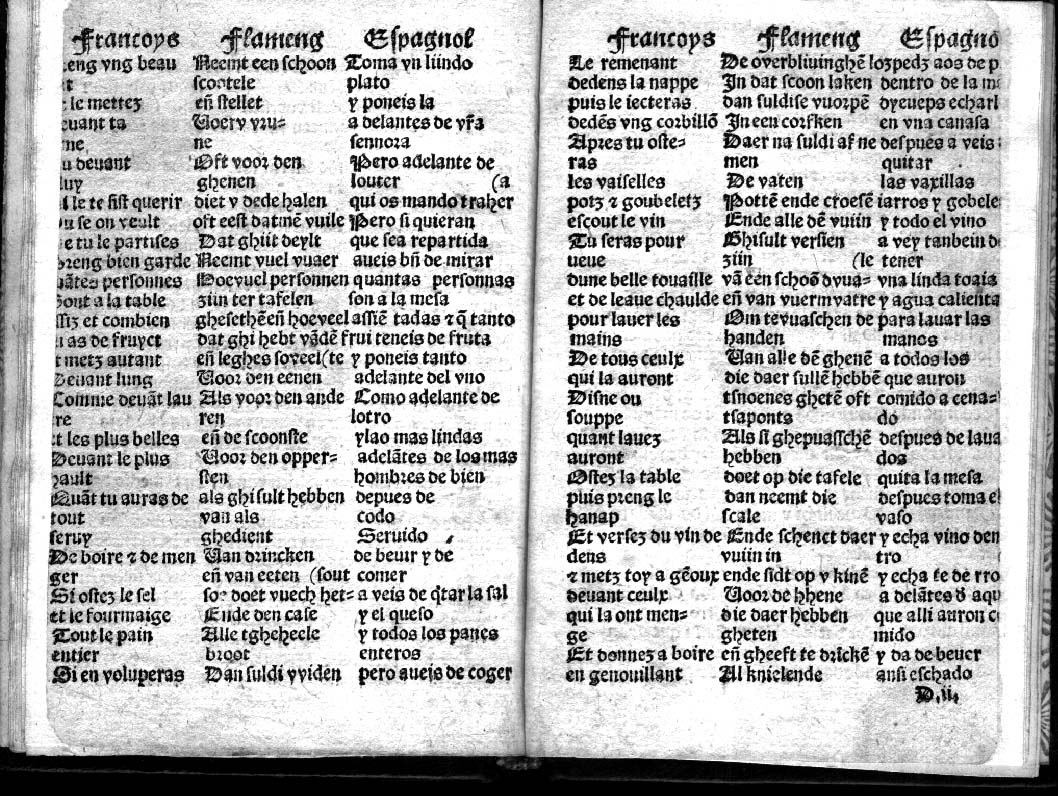 Francoys Flameng Espagnol
eng vng beau Neemt een schoon Toma vn liindo
t scootele plato
le mettez eñ stellet y poneis la
euant ta Voerv vru= a delantes de vr̃a
me, ne sennora
u deuant Oft voor den Pero adelante de
luy ghenen louter (a
l le te fist querir diet v dede halen qui os mando traher
u se on veult oft eest datmẽ vuile Pero si quieran
e tu le partises Dat ghiit deylt que sea repartida
preng bien garde Neemt vuel vuaer aueis bñ de mirar
uãtes personnes Hoevuel personnen quantas personnas
Sont a la table ziin ter tafelen son a la mesa
ssiz et combien ghesethẽ eñ hoeveel assiẽ tadas z q̃ tanto
u as de fruyct dat ghi hebt vãdẽ frui teneis de fruta
t metz autant eñ leghes soveel (te y poneis tanto
Deuant lung Voor den eenen adelante del vno
Comme deuãt lau Als voor den ande Como adelante de
re ren lotro
t les plus belles eñ de scoonste ylao mas lindas
Deuant le plus Voor den opper= adelãtes de los mas
hault sten hombres de bien
Quãt tu auras de als ghi sult hebben depues de
tout van als codo
seruy ghedient Seruido
De boire z de men Van drincken de beuir y de
ger eñ van eeten (sout comer
Si ostez le sel so doet vuech het= a veis de q̃tar la sal
et le fourmaige Ende den case y el queso
Tout le pain Alle tgheheele y todos los panes
entier broot enteros
Si en voluperas Dan suldi vviden pero aueis de coger
Francoys Flameng Espagno
Le remenant De overbliuinghẽ lozpedz aos de p
dedens la nappe In dat scoon laken dentro de la m
puis le iecteras dan suldise vuorpẽ dyeueps echarl
dedẽs vng corbillõ In een corfken en vna canasa
Apres tu oste= Daer na suldi af ne despues a veis
ras men quitar
les vaiselles De vaten las vaxillas
potz z goubeletz Pottẽ ende croesẽ iarros y gobele
escout le vin Ende alle dẽ vuiin y todo el vino
Tu seras pour Ghisult versien a vey tanbein d
ueue ziin (le tener
dune belle touaille vã een schoõ dvua= vna linda toaia
et de leaue chaulde eñ van vuermvatre y agua calienta
pour lauer les Om tevuaschen de para lauar las
mains handen manos
De tous ceulx Van alle dẽ ghenẽ a todos los
qui la auront die daer sullẽ hebbẽ que auron
Disne ou tsnoenes ghetẽ oft comido a cena=
souppe tsaponts do
quant lauez Als si ghepuasschẽ despues de laua
auront hebben dos
Ostez la table doet op die tafele quita la mesa
puis preng le dan neemt die despues toma el
hanap scale vaso
Et versez du vin de Ende schenct daer y echa vino den
dens vuiin in tro
z metz toy a gẽoux ende sidt op v kinẽ y echa te de rro
deuant ceulx Voor de hhene a delãtes d aqu
qui la ont men= die daer hebben que alli auron c
ge gheten mido
Et donnez a boire eñ gheeft te drickẽ y da de beuer
en genouillant Al knielende ansi eschado
D.ii.